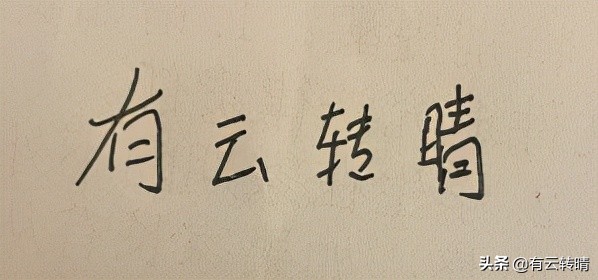 有云转晴
头条 @有云转晴